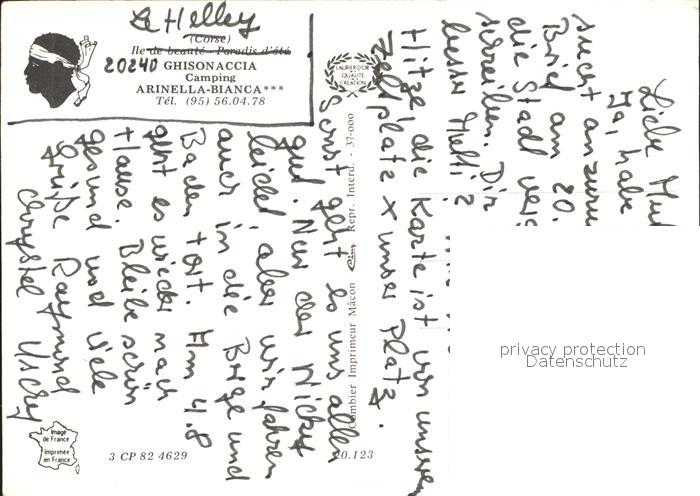 Le Helley
(Corse)
Ile de beauté - Paradis d'été
20240 GHISONACCIA
Camping
ARINELLA-BIANCA***
Tél. (95) 56.04.78
LAURIER D'OR
DE LA
QUALITÉ
CREATION
Liebe
Ja, habe
Brief am 20.
die Stadt
Dir
besser Mutti?
Hitze, die Karte ist von unserem
Zeltplatz x unser Platz.
Sonst geht es uns allen
gut. Nur der Nicky
leidet, aber wir fahren
auch in die Berge und
Baden dort. Am 4.8
geht es wieder nach
Hause. Bleibe schön
gesund und viele
Grüße Raymond
Chrystel
Combier Imprimeur Mâcon Cim Repr. Interd. - 37-000
Image
de France
Imprimée
en France
3 CP 82 4629
20.123
privacy protection
Datenschutz